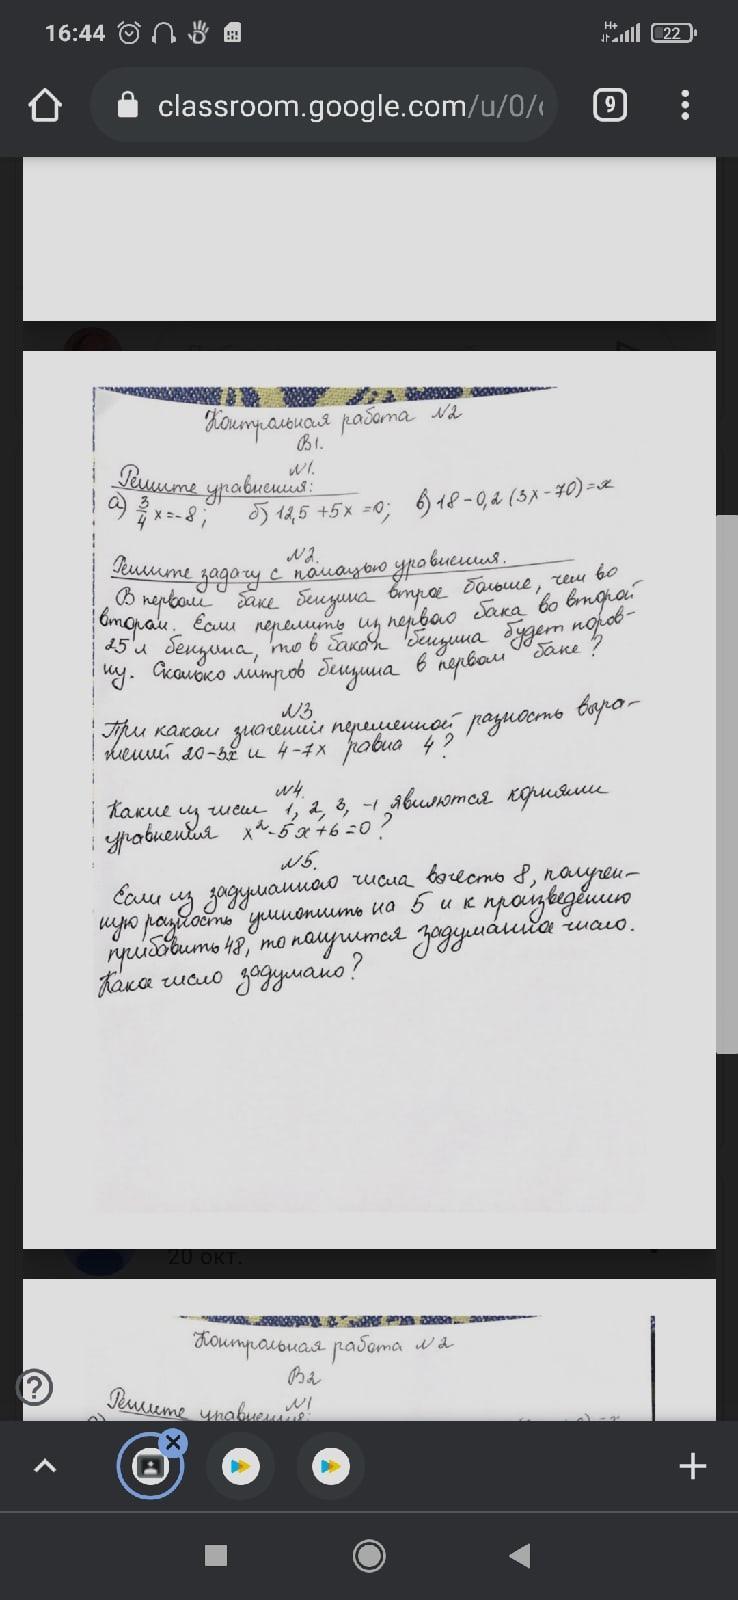 16:44
H+
22
classroom.google.com/u/0/
9
Контрольная работа N2
В1.
N1.
Решите уравнения:
а) 3/4 x=-8; б) 12,5+5x=0; в) 18-0,2(3x-70)=x
N2.
Решите задачу с помощью уравнения.
В первом баке бензина втрое больше, чем во
втором. Если перелить из первого бака во второй
25л бензина, то в баках бензина будет поров-
ну. Сколько литров бензина в первом баке?
N3
При каком значении переменной разность выра-
жений 20-3x и 4-7x равна 4?
N4.
Какие из чисел 1, 2, 3, -1 являются корнями
уравнения x²-5x+6=0?
N5.
Если из задуманного числа вычесть 8, получен-
ную разность умножить на 5 и к произведению
прибавить 48, то получится задуманное число.
Какое число задумано?
20 окт.
Контрольная работа N2
В2
N1
Решите уравнения:
?